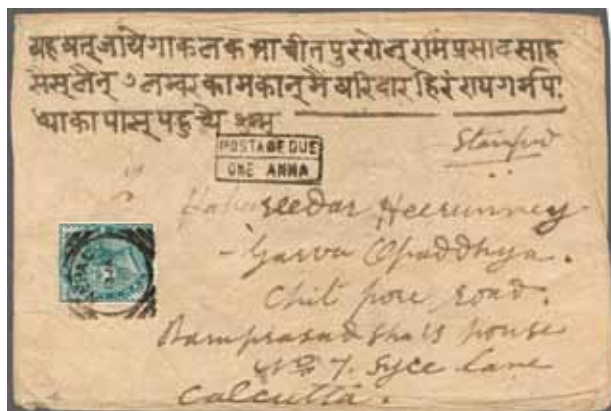 यह षत् जायेगा कलकत्ता चीतपुर रोन् रामप्रसाद साह
सेस् लैन् ७ नम्वर का मकान् मै षरिदार हिरं राय गर्भप
ध्या का पास् पहुचै
POSTAGE DUE
ONE ANNA
Stamped
Heerunney
Garva Opaddhya.
Chit pore road.
Ramprasad Sha's house
No 7. Syce Lane
Calcutta.